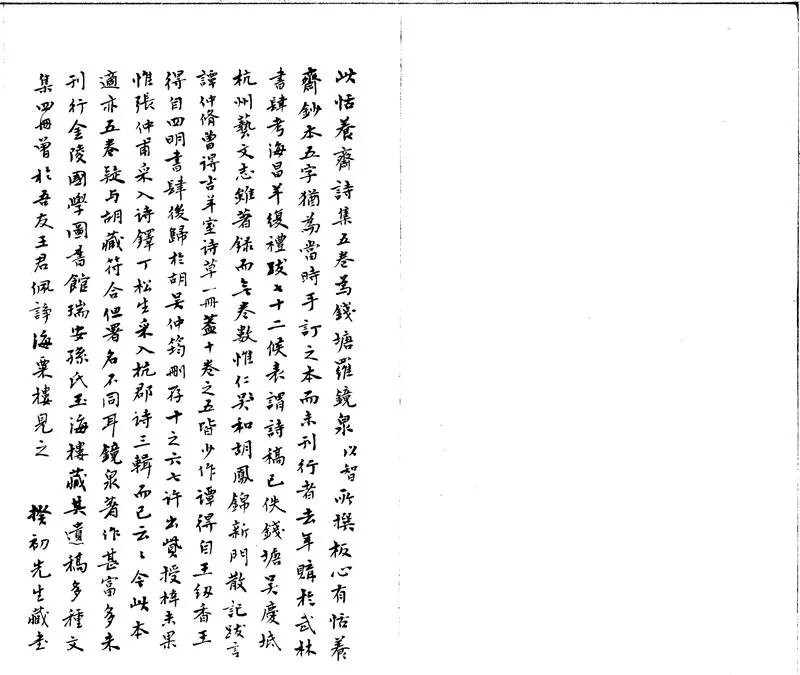 此恬養齋詩集五卷為錢塘羅鏡泉以智所撰板心有恬養
齋鈔本五字猶為當時手訂之本而未刊行者去年購於武林
書肆考海昌羊復禮跋七十二候表謂詩稿已佚錢塘吳慶坻
杭州藝文志雖著録而無卷數惟仁和胡鳳錦新門散記跋言
譚仲脩曾得吉羊室诗草一冊蓋十卷之五皆少作譚得自王
得自四明書肆後歸於胡吳仲筠刪存十之六七许出貲授梓未果
惟張仲甫采入诗鐸丁松生采入杭郡诗三輯而已云〻今此本
適亦五卷疑与胡藏符合但署名不同耳鏡泉著作甚富多未
刊行金陵國學圖書館瑞安孫氏玉海樓藏其遺稿多種文
集四冊曾於吾友王君佩諍海粟樓見之 揆初先生藏書